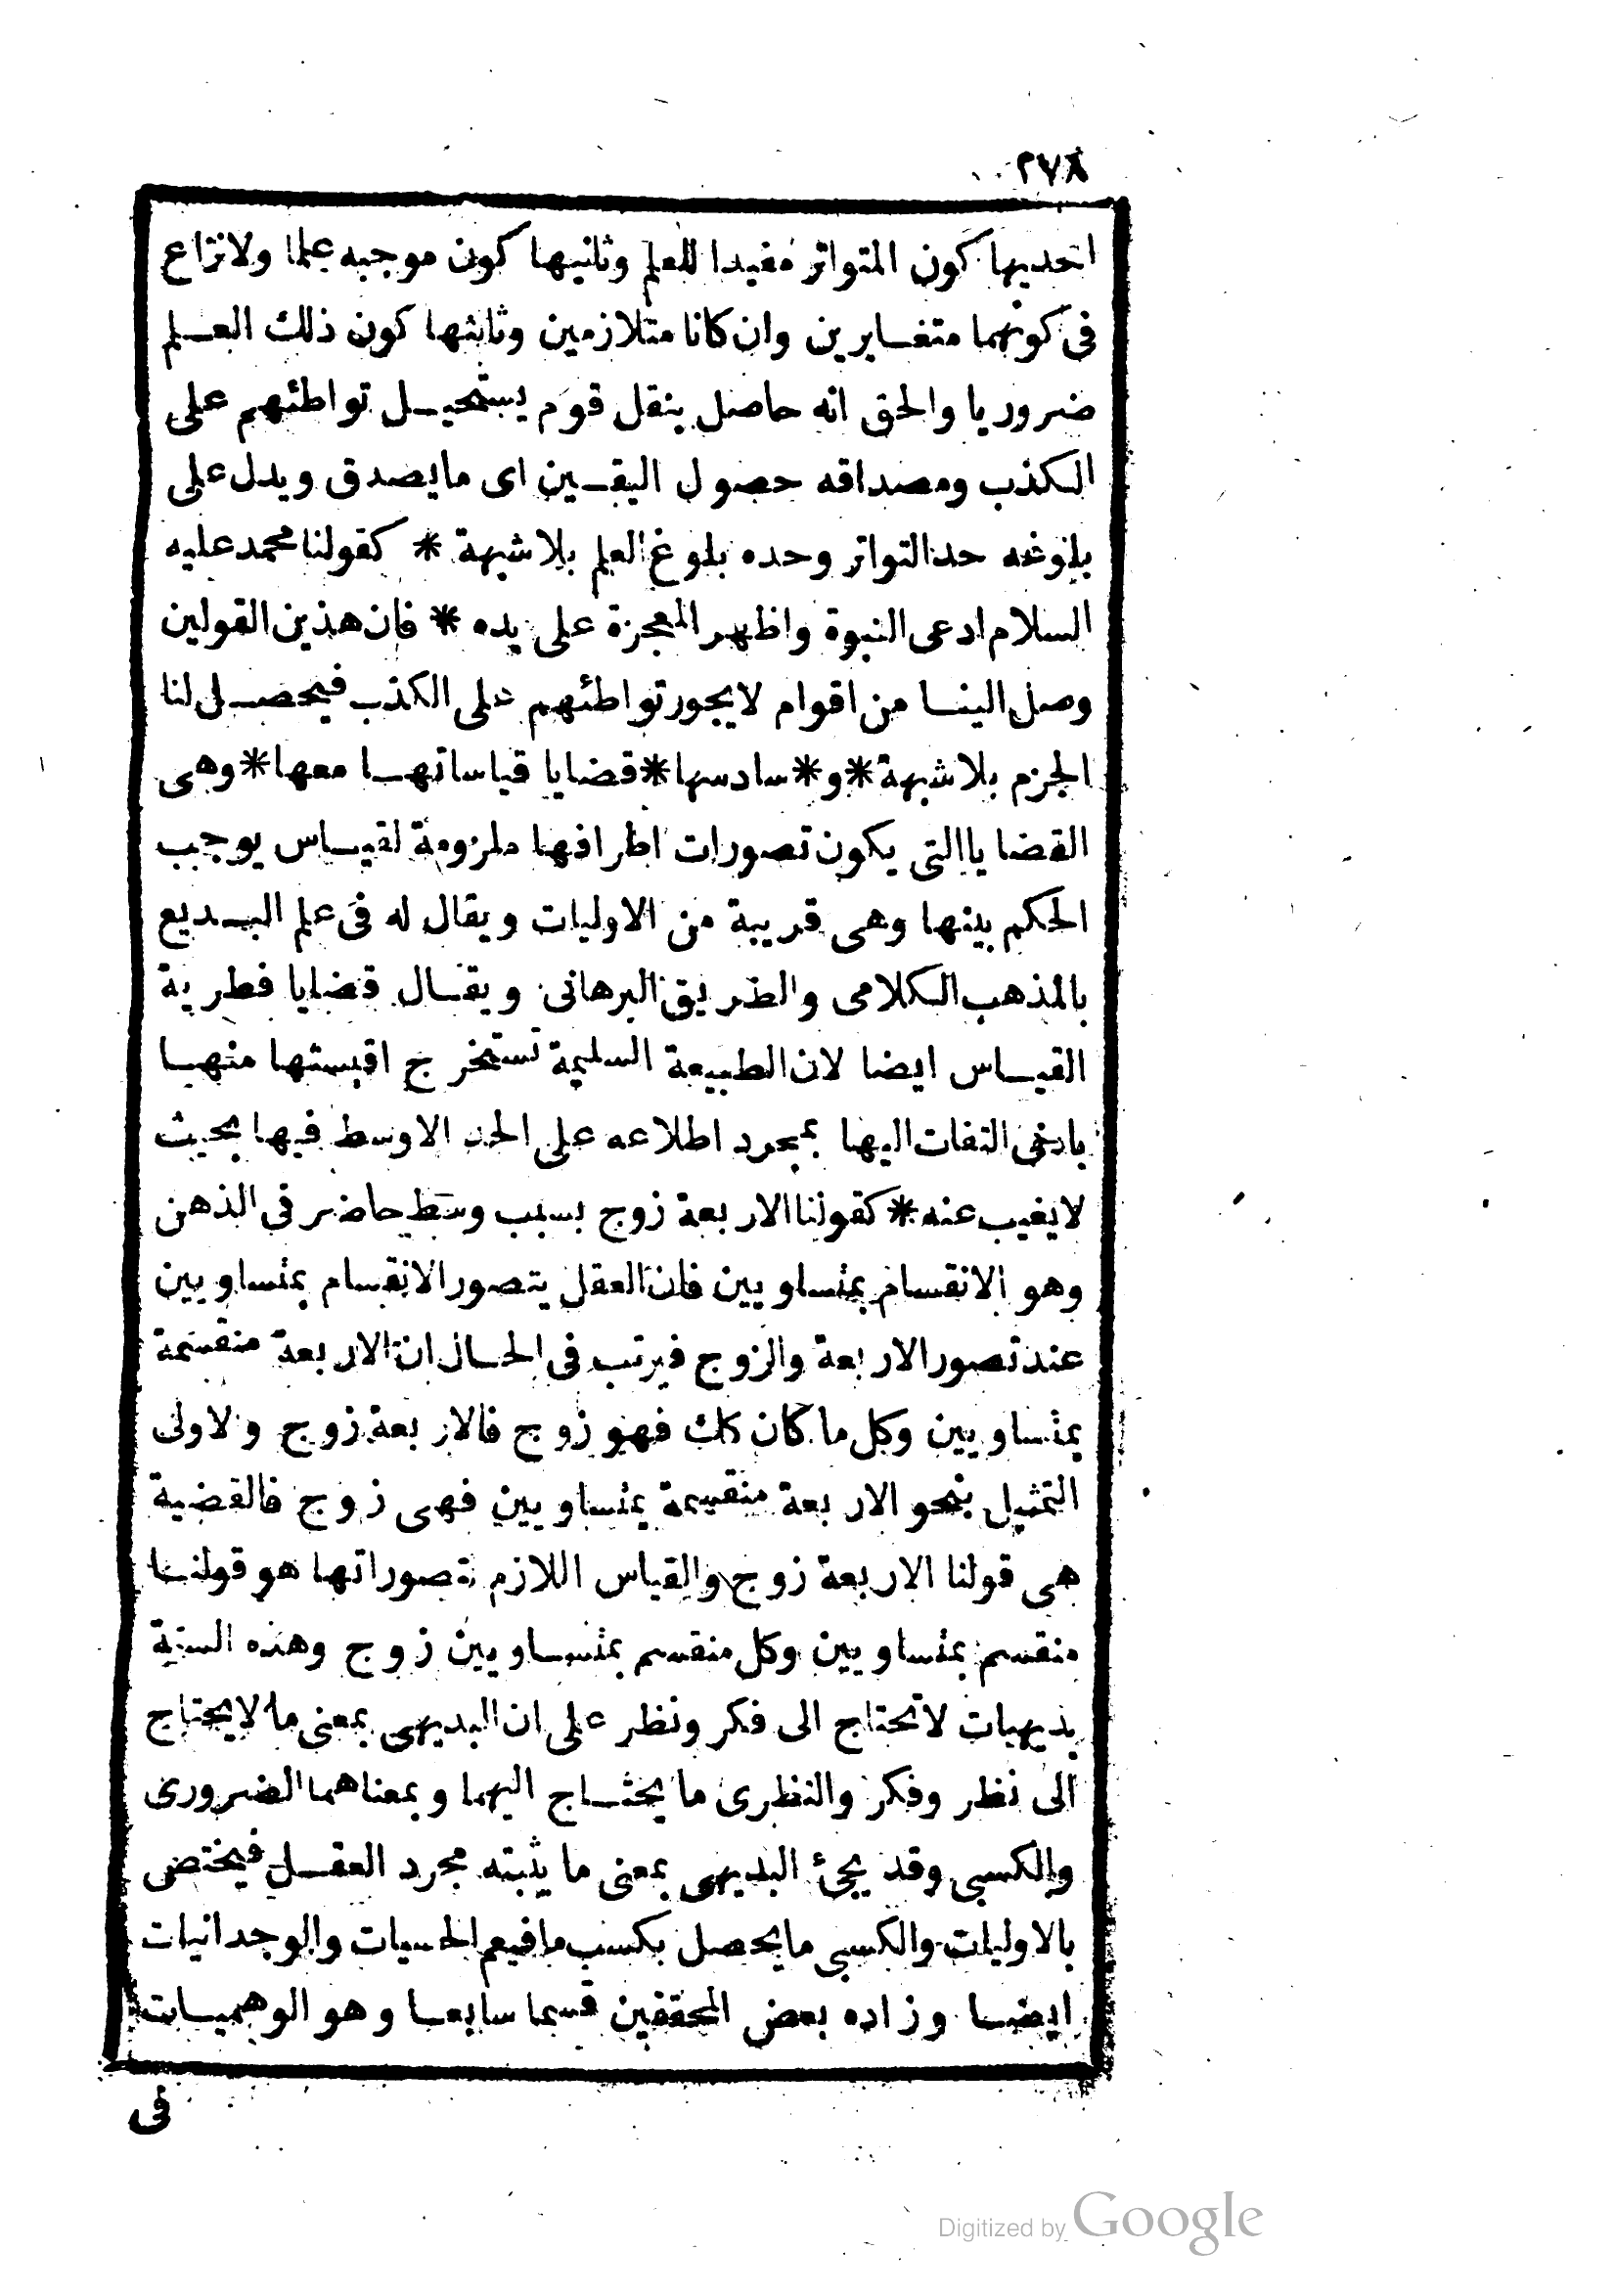 ٢٧٨
احديها كون المتواتر مفيدا للعلم وثانيها كون موجبه علما ولانزاع
فى كونهما متغايرين وان كانا متلازمين وثالثها كون ذلك العلم
ضروريا والحق انه حاصل بنقل قوم يستحيل تواطئهم على
الكذب ومصداقه حصول اليقين اى مايصدق ويدل على
بلوغه حد التواتر وحده بلوغ العلم بلاشبهة * كقولنا محمد عليه
السلام ادعى النبوة واظهر المعجزة على يده * فان هذين القولين
وصل الينا من اقوام لايجوز تواطئهم على الكذب فيحصل لنا
الجزم بلاشبهة * و * سادسها * قضايا قياساتها معها * وهى
القضايا التى يكون تصورات اطرافها ملزومة لقياس يوجب
الحكم بينها وهى قريبة من الاوليات ويقال له فى علم البديع
بالمذهب الكلامى والطريق البرهانى ويقال قضايا فطرية
القياس ايضا لان الطبيعة السليمة تستخرج اقيستها منها
بادنى التفات اليها بمجرد اطلاعه على الحد الاوسط فيها بحيث
لايغيب عنه * كقولنا الاربعة زوج بسبب وسط حاضر فى الذهن
وهو الانقسام بمتساويين فان العقل يتصور الانقسام بمتساويين
عند تصور الاربعة والزوج فيرتب فى الحال ان الاربعة منقسمة
بمتساويين وكل ما كان كك فهو زوج فالاربعة زوج والاولى
التمثيل بنحو الاربعة منقسمة بمتساويين فهى زوج فالقضية
هى قولنا الاربعة زوج والقياس اللازم تصوراتها هو قولنا
منقسم بمتساويين وكل منقسم بمتساويين زوج وهذه الستة
بديهيات لاتحتاج الى فكر ونظر على ان البديهى بمعنى ما لايحتاج
الى نظر وفكر والنظرى ما يحتاج اليهما وبمعناهما الضرورى
والكسبى وقد يجئ البديهى بمعنى ما يثبته مجرد العقل فيختص
بالاوليات والكسبى مايحصل بكسب ما فيعم الحسيات والوجدانيات
ايضا وزاده بعض المحققين قسما سابعا وهو الوهميات
فى
Digitized by Google